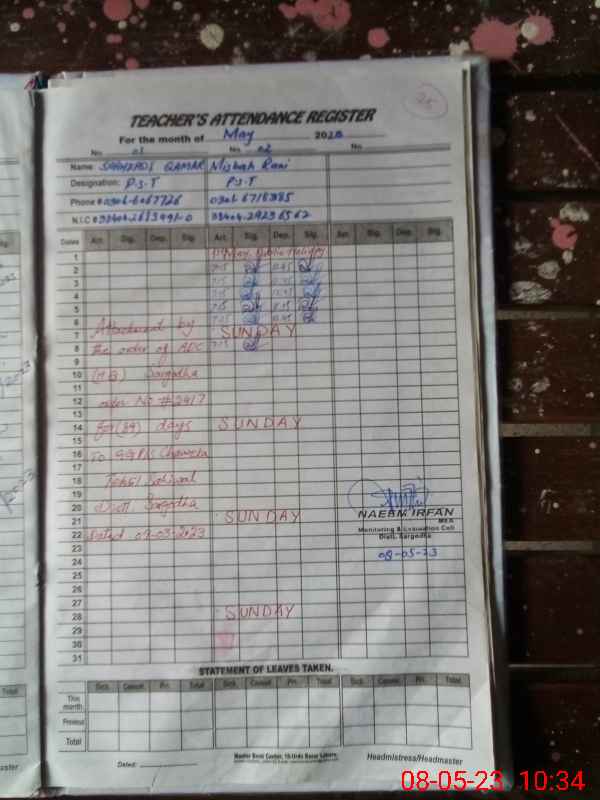 25
TEACHER'S ATTENDANCE REGISTER
For the month of May 2023
No. 01 No. 02 No.
Name: SARHEADI QAMAR Misbah Rani
Designation: P.S.T P.S.T
Phone # 0306-6067726 0301 6718385
N.I.C #
Dates Arr. Sig. Dep. Sig. Arr. Sig. Dep. Sig. Arr. Sig. Dep. Sig.
1 1st May Public Holiday
2 7:15
3 7:15
4 7:15
5 7:15
6 7:15
7 Attachment by SUNDAY
8 the order of ADC 7:15
9
10 Sargodha
11
12 order No # 2417
13
14 For (89) days SUNDAY
15
16 To
17
18
19
20 Distt. Sargodha
21 SUNDAY
22 Dated 09-03-2023
23
24
25
26
27
28 SUNDAY
29
30
31
NAEEM IRFAN
MEA
Monitoring & Evaluation Cell
Distt. Sargodha
08-05-23
STATEMENT OF LEAVES TAKEN.
Sick Casual Pri. Total Sick Casual Pri. Total Sick Casual Pri. Total
This month
Previous
Total
Dated: Master Book Center, 10-Urdu Bazar Lahore. Headmistress/Headmaster
Total
08-05-23 10:34